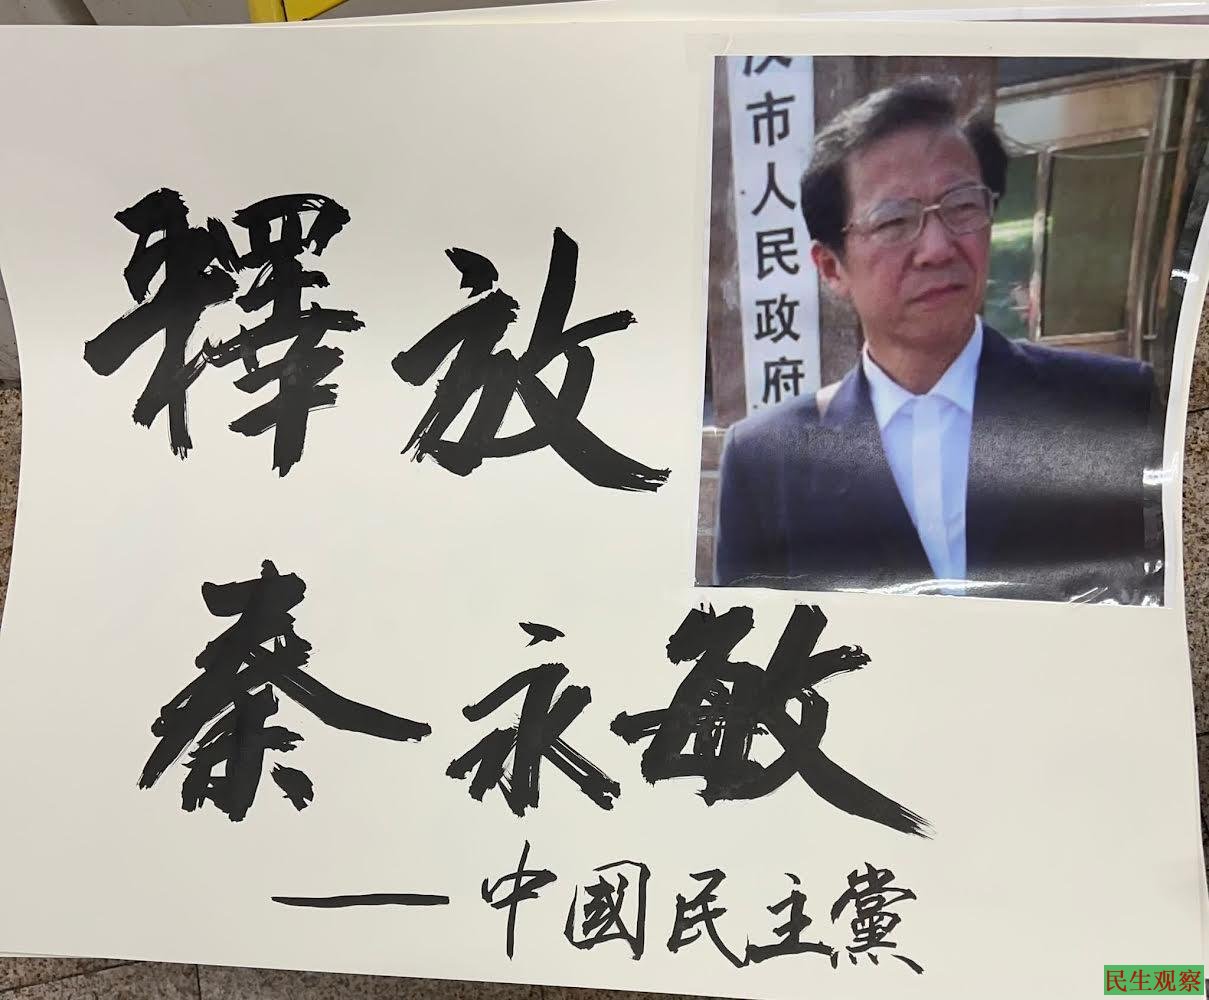 釋放
市人民政府
秦永敏
—中國民主黨
民生观察